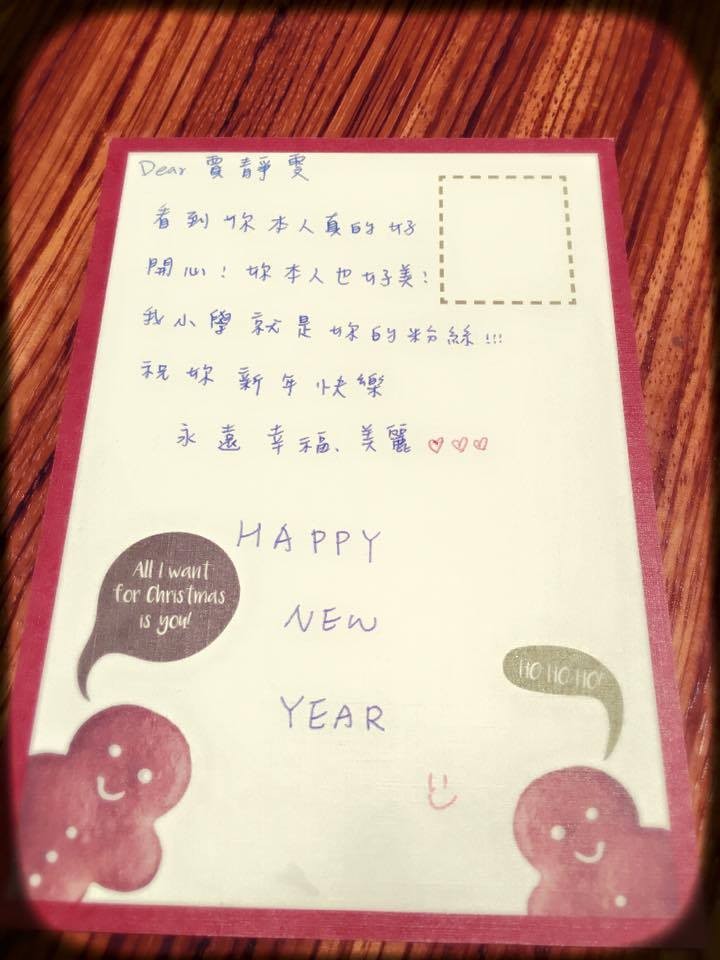 Dear 賈靜雯
看到妳本人真的好
開心！妳本人也好美！
我小學就是妳的粉絲!!!
祝妳新年快樂
永遠幸福、美麗♡♡♡
HAPPY
NEW
YEAR
All I want
for Christmas
is you!
HO HO HO!